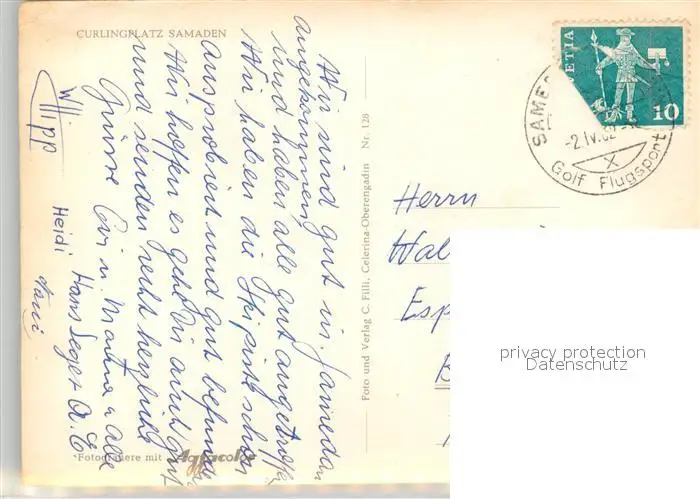 CURLINGPLATZ SAMADEN
Wir sind gut in Samedan
angekommen,
und haben alle gut angetroffen
Wir haben die Skipiste schon
ausprobiert und gut befunden
Wir hoffen es geht Dir auch gut
und senden recht herzliche
Grüsse Evi u. Martina u alle
Hans Seger
Heidi
Willi
*Fotografiere mit Agfacolor
Foto und Verlag C. Filli, Celerina-Oberengadin Nr. 128
HELVETIA
10
SAME
-2.IV.62
X
Golf Flugsport
Herrn
Wal
Esp
B
privacy protection
Datenschutz